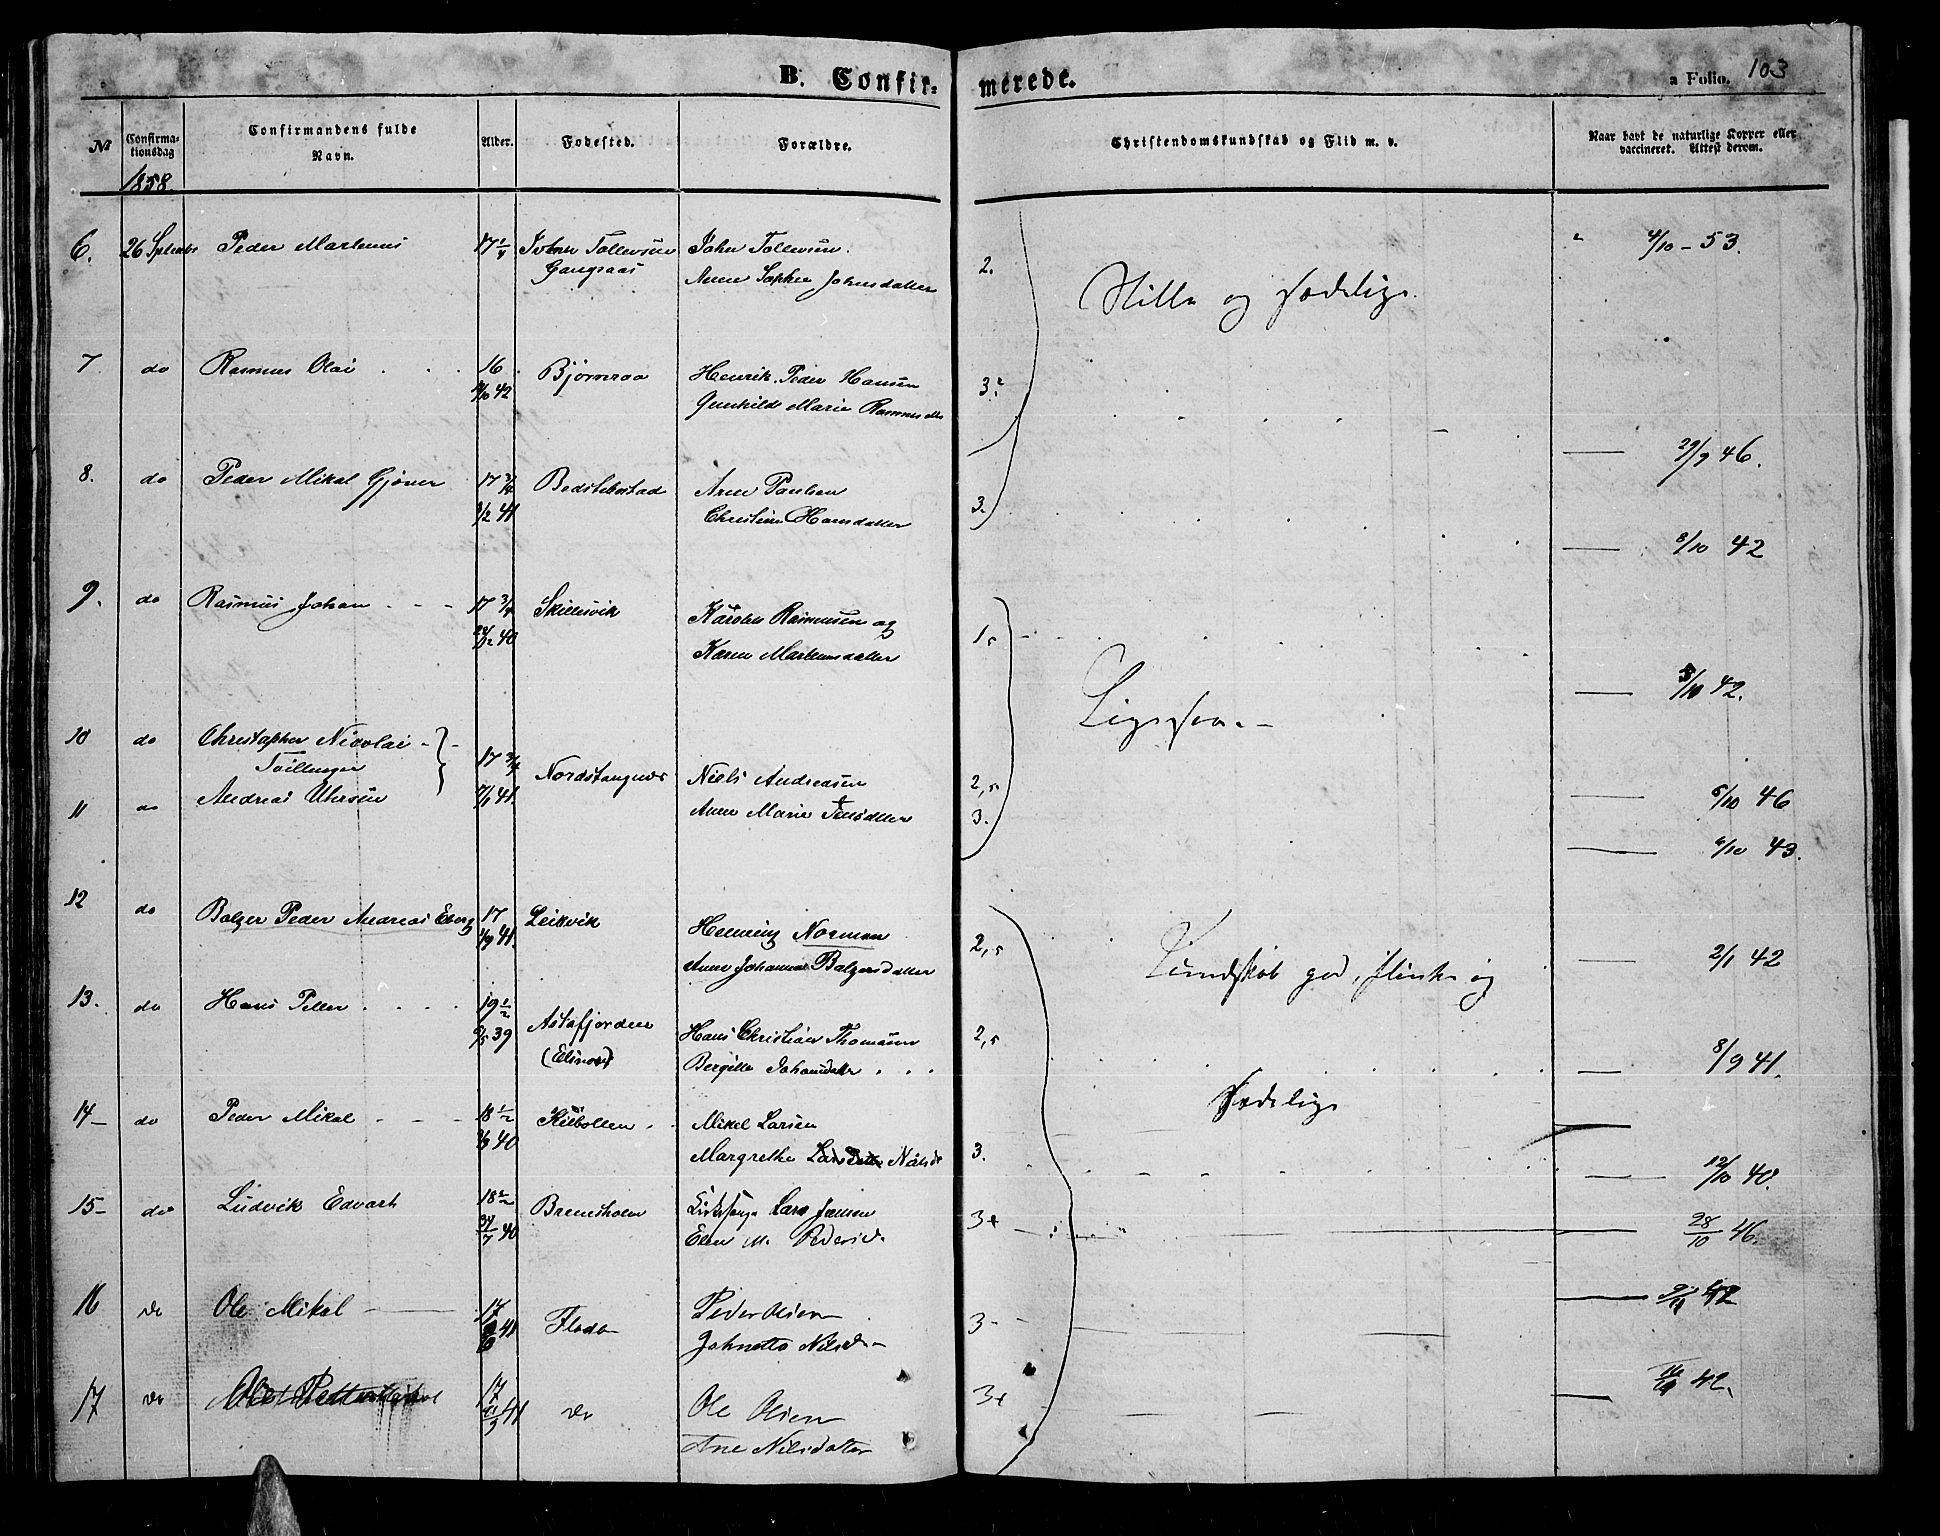 B. Confir-
merede.
a Folio. 103
No
Confirma-
tionsdag
1858
Confirmandens fulde
Navn.
Alder.
Fødested.
Forældre.
Christendomskundskab og Flid m. v.
Naar havt de naturlige Kopper eller
vaccineret. Attest derom.
6. 26 Septembr Peder Martinus 17 1/4 Tollevsen John Tollevsen. 2. Stille og sædelig. 4/10 - 53.
Gangsaas Anne Sophie Johnsdatter
7 do Rasmus Olai 16 Bjørnraa Henrik Peder Hansen 3.
/10 42 Gunhild Marie Rasmusdtr
29/9 46.
8. do Peder Mikal Gjøver 17 3/4 Bedstebostad Arne Paulsen 3.
/2 41 Christine Hansdatter
8/10 42
9. do Rasmus Johan 17 3/4 Skillesvik Karsten Rasmussen og 1,5
/12 40 Karen Martinusdatter
Ligesaa.
/10 42.
10 do Christopher Nicolai 17 3/4 Nordstangnes Niels Andreassen 2,5
Tvillinger
11 do Andreas 7/1 41. Anne Marie 3.
6/10 46
6/10 43.
12 do Balzer Peder Andreas Eberg 17 Leikvik Henning Norman 2,5 Kundskab god, flink og 2/1 42
/9 41. Anne Johanna Balzersdatter
13. do Hans Petter 19 1/2 Astafjorden Hans Christian Thomassen 2,5
/5 39 (Elinor) Bergitte Johansdatter
8/9 41.
sædelig
14 do Peder Mikal 18 1/2 Kilbotten Mikel Larsen 3.
/3 40 Margrethe Nilsdr
12/10 40.
15 do Ludvik Edvart 18 1/2 Bremsholm Lars Jensen 3+
/7 40 Elen M. Pedersd.
28/10 46.
16 do Ole Mikal 17 Flada Peder Olsen 3-
41 Johnetta Nilsd.
42
17 do Ole 17 do Ole Olsen 3+
41 Ane Nilsdatter
42.